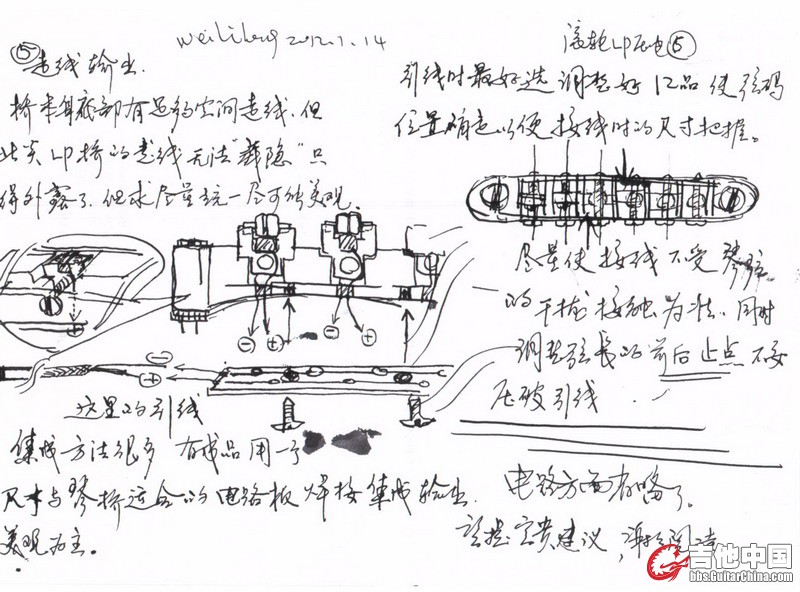 weilibing 2012.1.14
⑤走线输出.
桥本身底部有足够空间走线.但
此类LP桥的走线无法"藏隐"只
得外露了.但求尽量统一尽可能美观.
这里的引线
集成方法很多 有成品用一个
尺寸与琴桥适合的电路板焊接集成输出.
美观为主.
滚轮LP压电⑤
引线时最好选调整好12品使弦码
位置确定以便接线时的尺寸把握。
尽量使接线不受琴弦
的干扰接触为准.同时
调整弦长的前后止点不要
压破引线.
电路方面省略了.
请提宝贵建议,谢谢阅读
吉他中国
bbs.GuitarChina.com